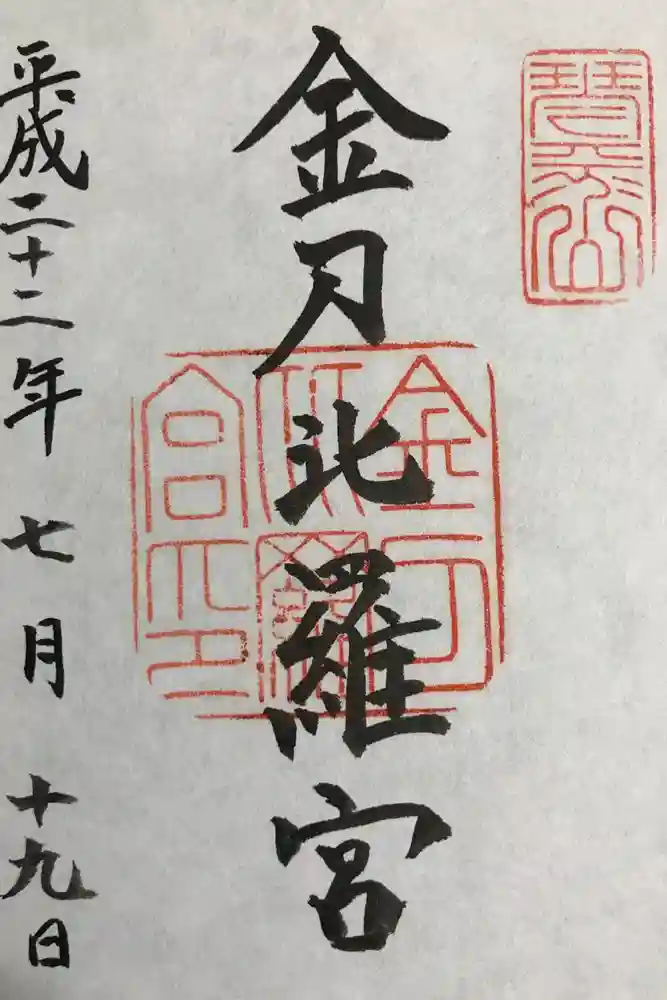 琴平山
金刀比羅宮
金刀
比羅
宮印
平成二十二年七月十九日